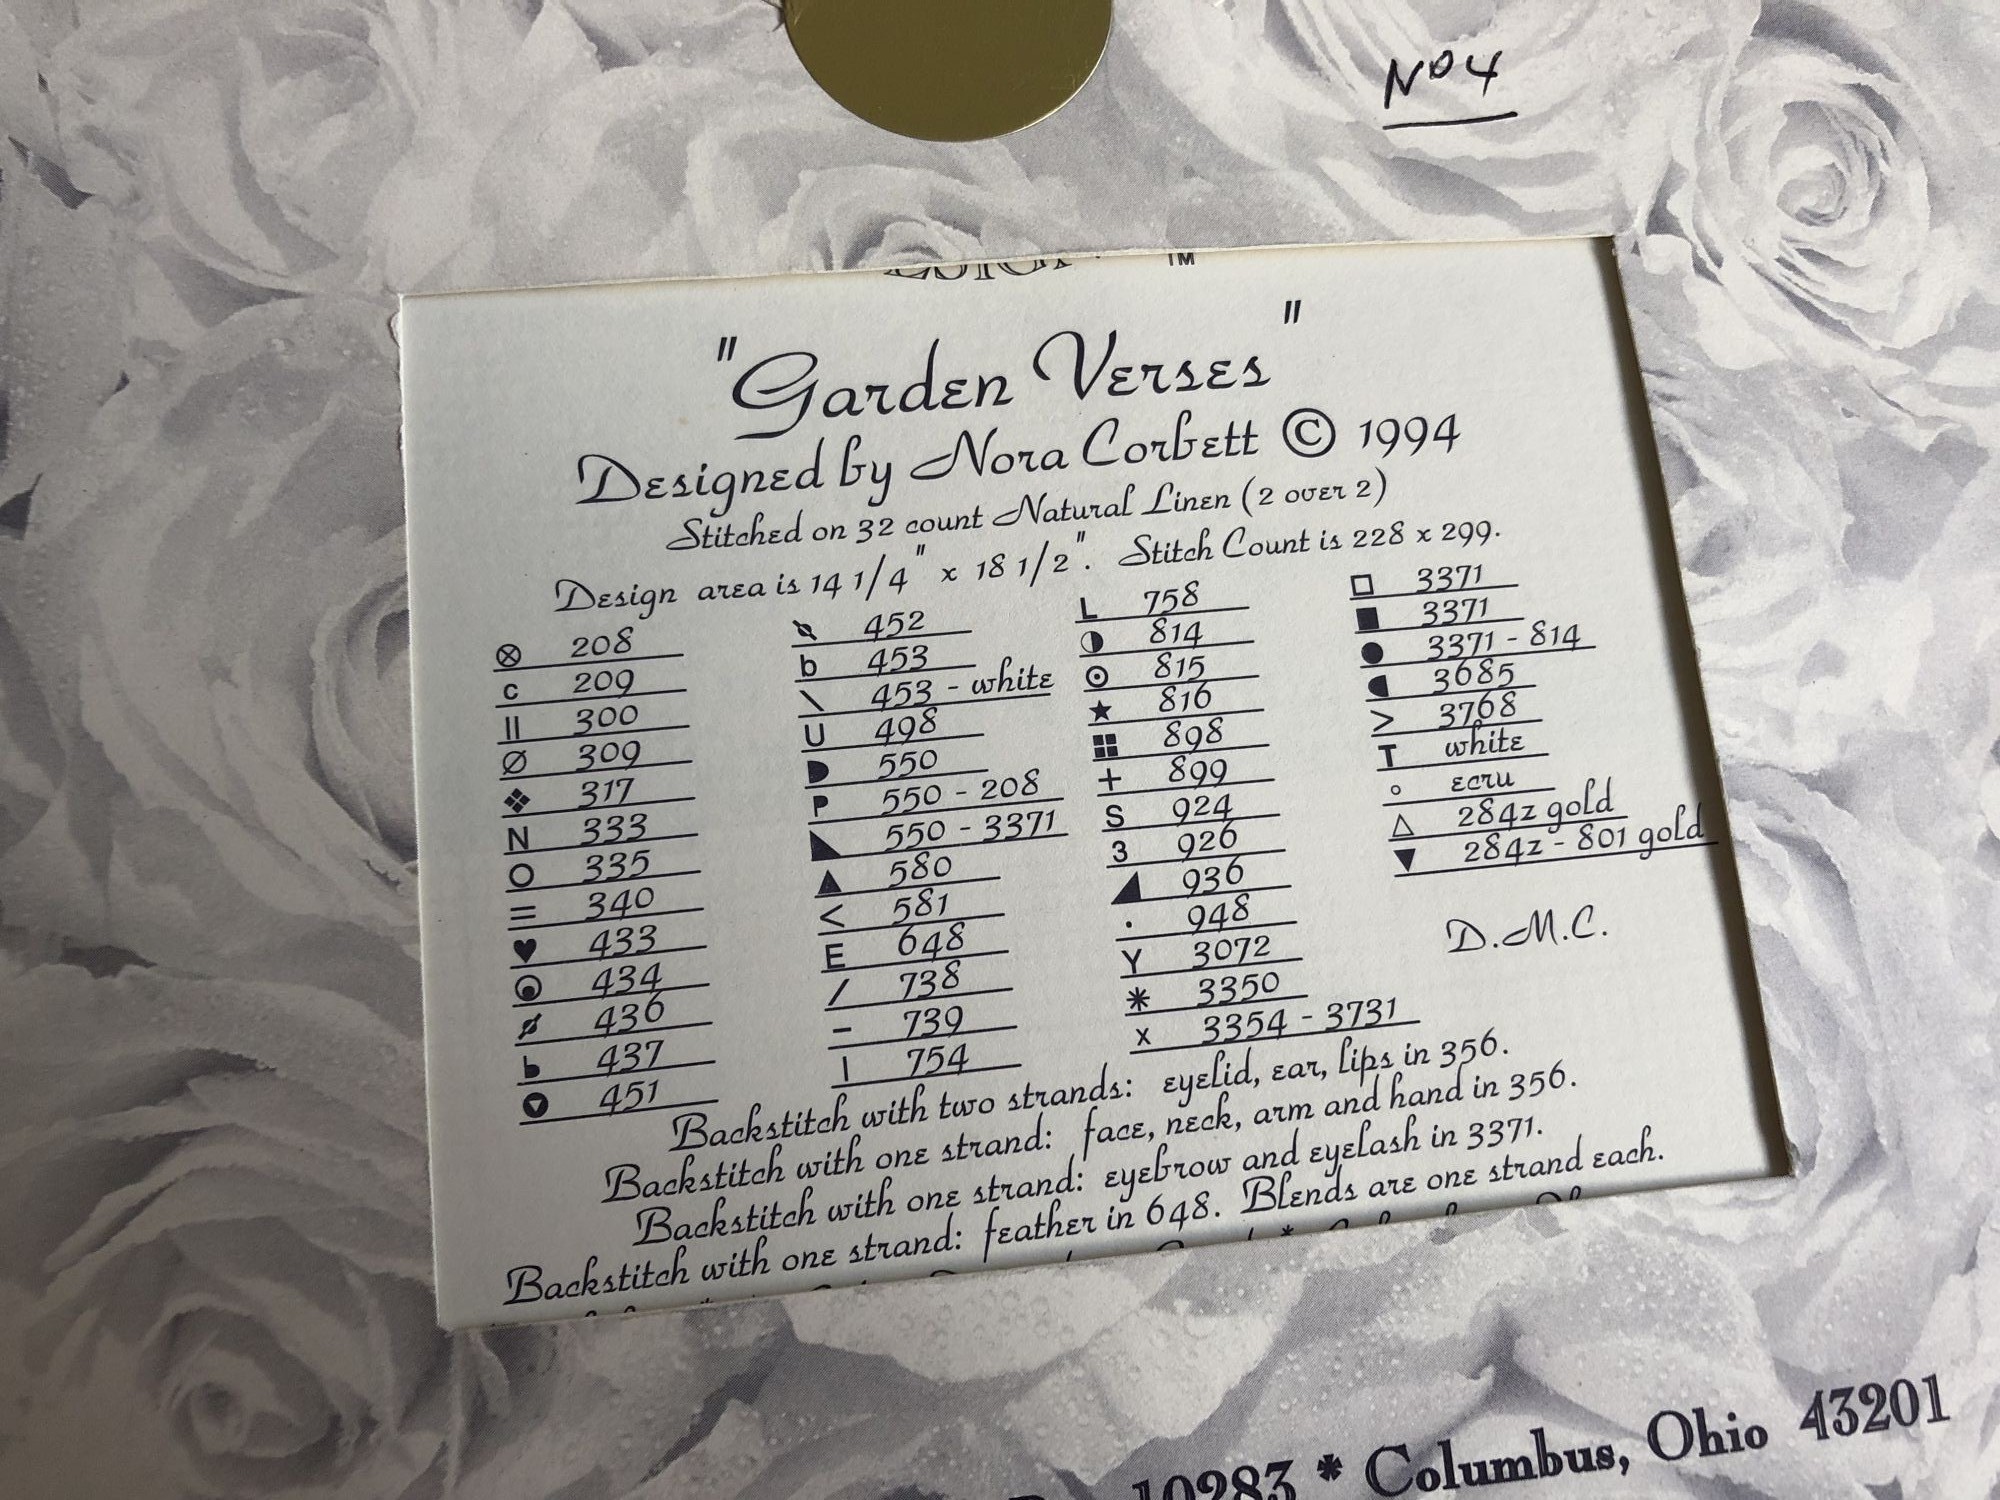 Nº 4
TM
"Garden Verses"
Designed by Nora Corbett © 1994
Stitched on 32 count Natural Linen (2 over 2)
Design area is 14 1/4" x 18 1/2". Stitch Count is 228 x 299.
⊗ 208
c 209
|| 300
Ø 309
❖ 317
N 333
O 335
= 340
♥ 433
434
436
b 437
451
452
b 453
\ 453 - white
U 498
D 550
P 550 - 208
◣ 550 - 3371
▲ 580
< 581
E 648
/ 738
- 739
| 754
L 758
◑ 814
⊙ 815
★ 816
898
+ 899
S 924
3 926
◢ 936
· 948
Y 3072
* 3350
x 3354 - 3731
□ 3371
■ 3371
● 3371 - 814
◖ 3685
> 3768
T white
° ecru
△ 284z gold
▼ 284z - 801 gold
D.M.C.
Backstitch with two strands: eyelid, ear, lips in 356.
Backstitch with one strand: face, neck, arm and hand in 356.
Backstitch with one strand: eyebrow and eyelash in 3371.
Backstitch with one strand: feather in 648. Blends are one strand each.
10283 * Columbus, Ohio 43201